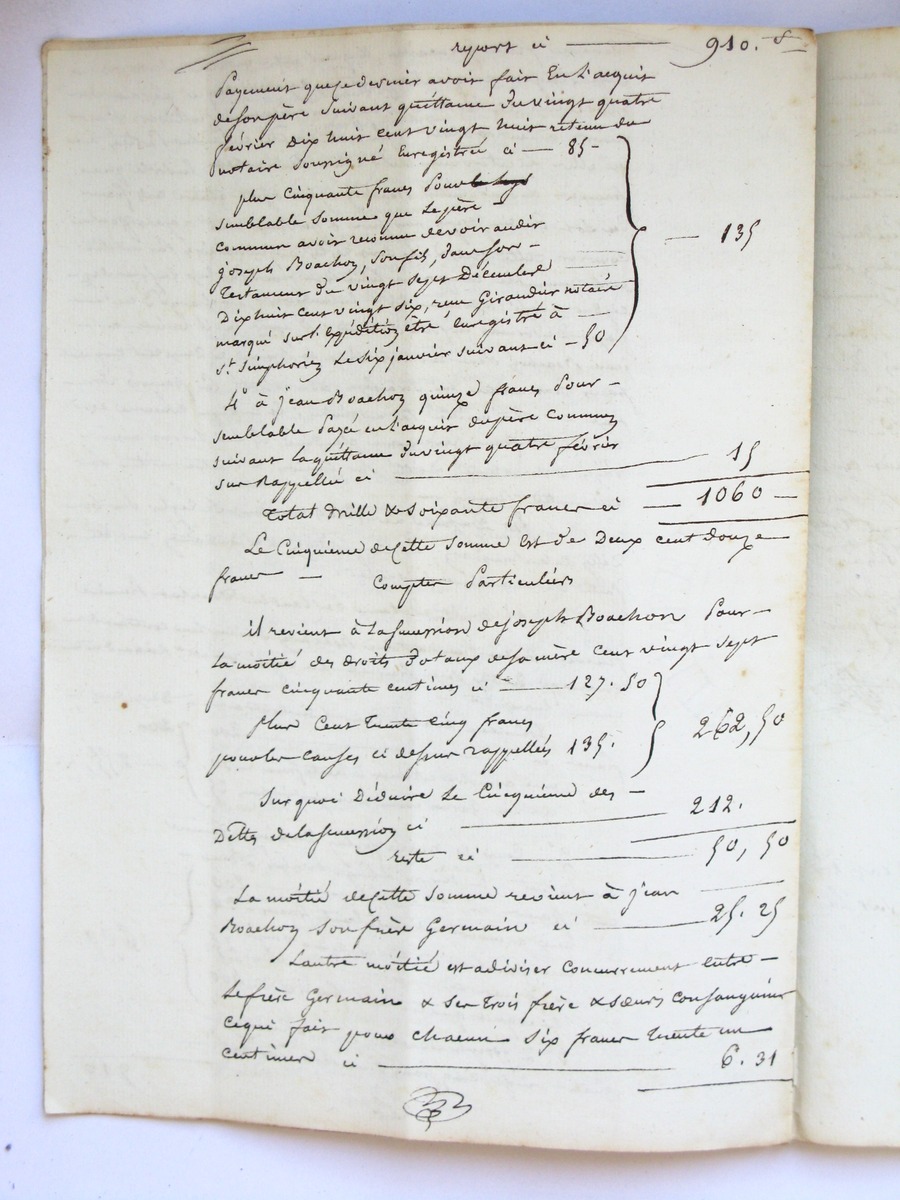 report ci — 910. "
Payement que ce dernier avoit fait En l'acquit
de son père suivant quittance du vingt quatre
février Dix huit cent vingt huit retenu du
notaire soussigné Enregistrée ci — 85 -
plus Cinquante francs Pour
semblable somme que Le père
commun avoir reconnu devoir audit
joseph Boachon, son fils, dans son -
Testament du vingt sept Décembre
Dix huit cent vingt six, reçu Girandier notaire
marqué sur l'Expédition être Enregistré à —
St. Simphorien Le six janvier suivant ci - 50
— 135
4° à jean Boachon quinze francs Pour -
semblable Payé en l'acquit du père Commun
suivant la quittance du vingt quatre février
sus Rappellée ci — 15
Total Mille & soixante francs ci — 1060 —
Le Cinquième de Cette somme Est de Deux cent douze
francs —
Comptes Particuliers
il revient à La succession de joseph Boachon Pour -
La moitié des droits Dotaux de sa mère cent vingt sept
francs cinquante centimes ci — 127. 50
plus Cent Trente cinq francs
pour les Causes ci dessus rappellées 135.
262,50
Sur quoi Déduire Le Cinquième des -
Dettes de la succession ci — 212.
reste ci — 50, 50
La moitié de Cette somme revient à jean
Boachon son frère Germain ci — 25. 25
Lautre moitié est a diviser Concurrement entre -
Le frère Germain & ses Trois frère & sœurs Consanguins
ce qui fait pour chacun six francs trente un
centimes ci — 6. 31